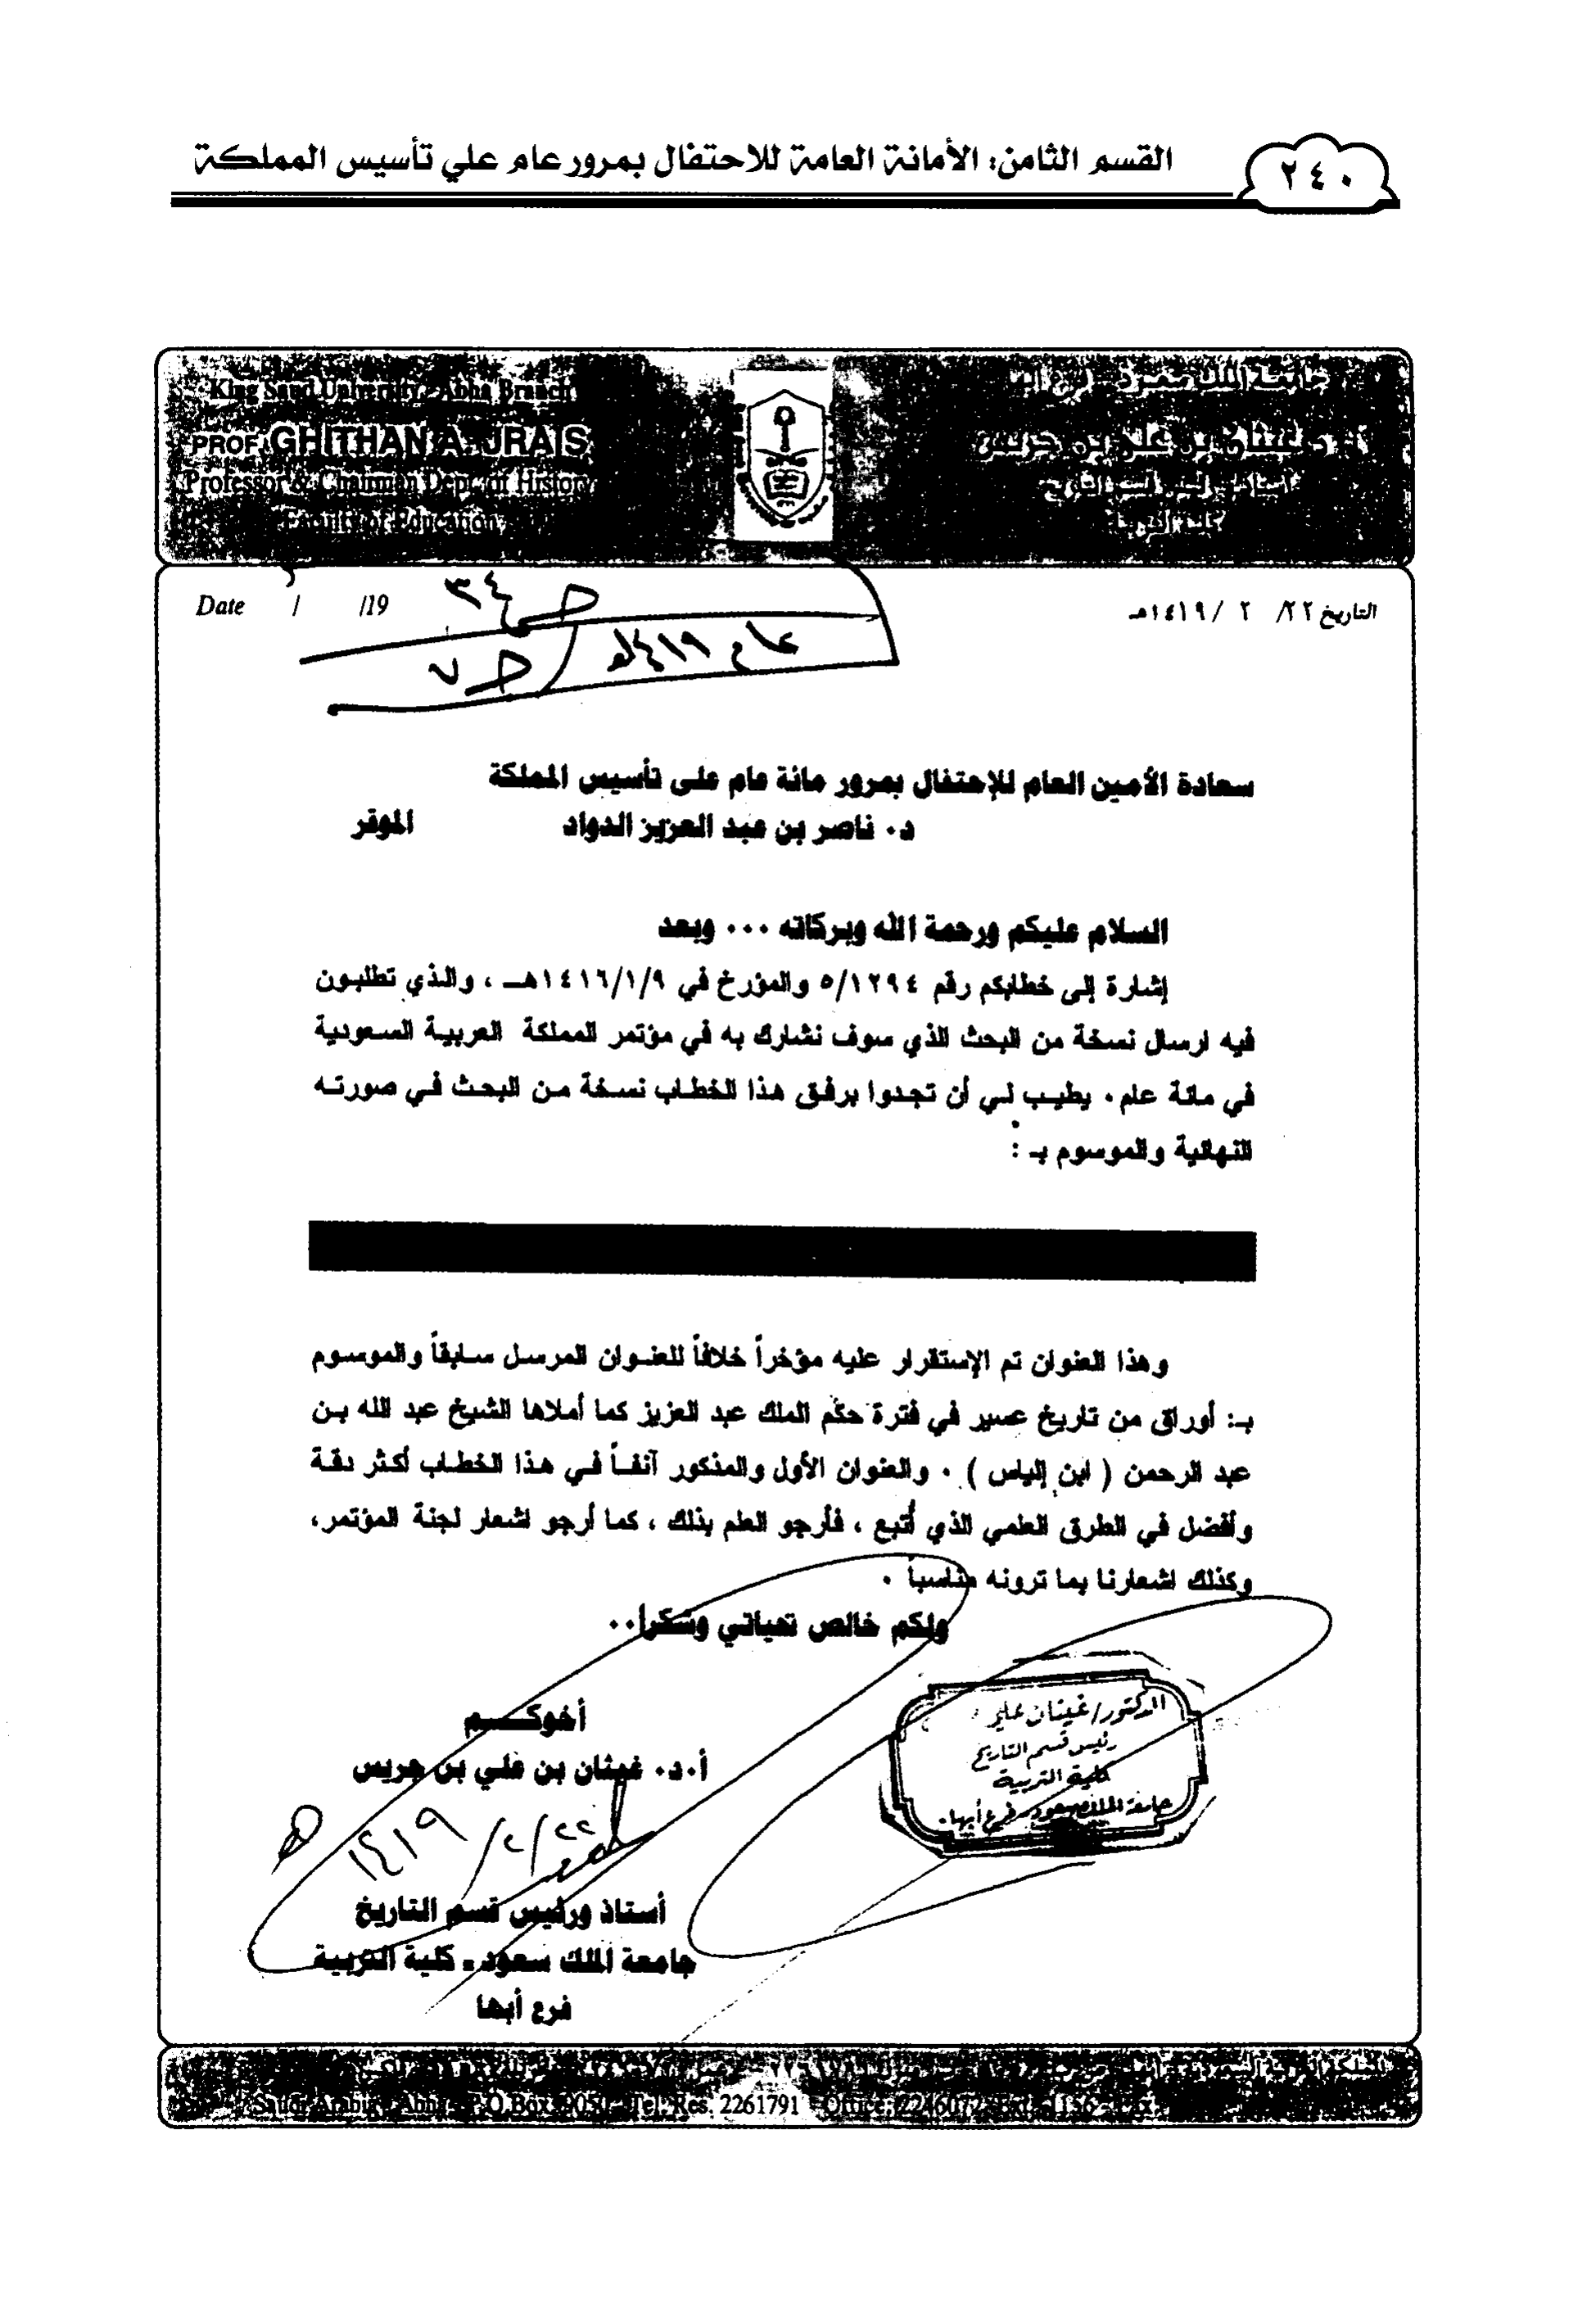 ٢٤٠
القسم الثامن: الأمانة العامة للاحتفال بمرور عام علي تأسيس المملكة
King Saud University, Abha Branch
PROF. GHITHAN A. JRAIS
Professor & Chairman Dept. of History
Faculty of Education
التاريخ ٢٢/ ٢ /١٤١٩هـ
Date / /19
حـ ٣٤
عام ١٤١٩هـ / حـ ٧
سعادة الأمين العام للإحتفال بمرور مائة عام على تأسيس المملكة
د. ناصر بن عبد العزيز الدواد الموقر
السلام عليكم ورحمة الله وبركاته ... وبعد
إشارة إلى خطابكم رقم ٥/١٢٩٤ والمؤرخ في ١٤١٦/١/٩هـ ، والذي تطلبون
فيه ارسال نسخة من البحث الذي سوف نشارك به في مؤتمر المملكة العربية السعودية
في مائة عام. يطيب لي أن تجدوا برفق هذا الخطاب نسخة من البحث في صورته
النهائية والموسوم بـ :
وهذا العنوان تم الإستقرار عليه مؤخراً خلافاً للعنوان المرسل سابقاً والموسوم
بـ: أوراق من تاريخ عسير في فترة حكم الملك عبد العزيز كما أملاها الشيخ عبد الله بن
عبد الرحمن ( ابن إلياس ) . والعنوان الأول والمذكور آنفاً في هذا الخطاب أكثر دقة
وأفضل في الطرق العلمي الذي أتبع ، فأرجو العلم بذلك ، كما أرجو اشعار لجنة المؤتمر،
وكذلك اشعارنا بما ترونه مناسباً .
ولكم خالص تحياتي وشكراً..
أخوكــم
أ.د. غيثان بن علي بن جريس
١٤١٩/٢/٢٢
أستاذ ورئيس قسم التاريخ
جامعة الملك سعود - كلية التربية
فرع أبها
الدكتور/ غيثان علي
رئيس قسم التاريخ
كلية التربية
جامعة الملك سعود - فرع أبها
Saudi Arabia Abha P.O.Box. 9050 Tel. Res. 2261791 Office. 2246072 Ext. 1156